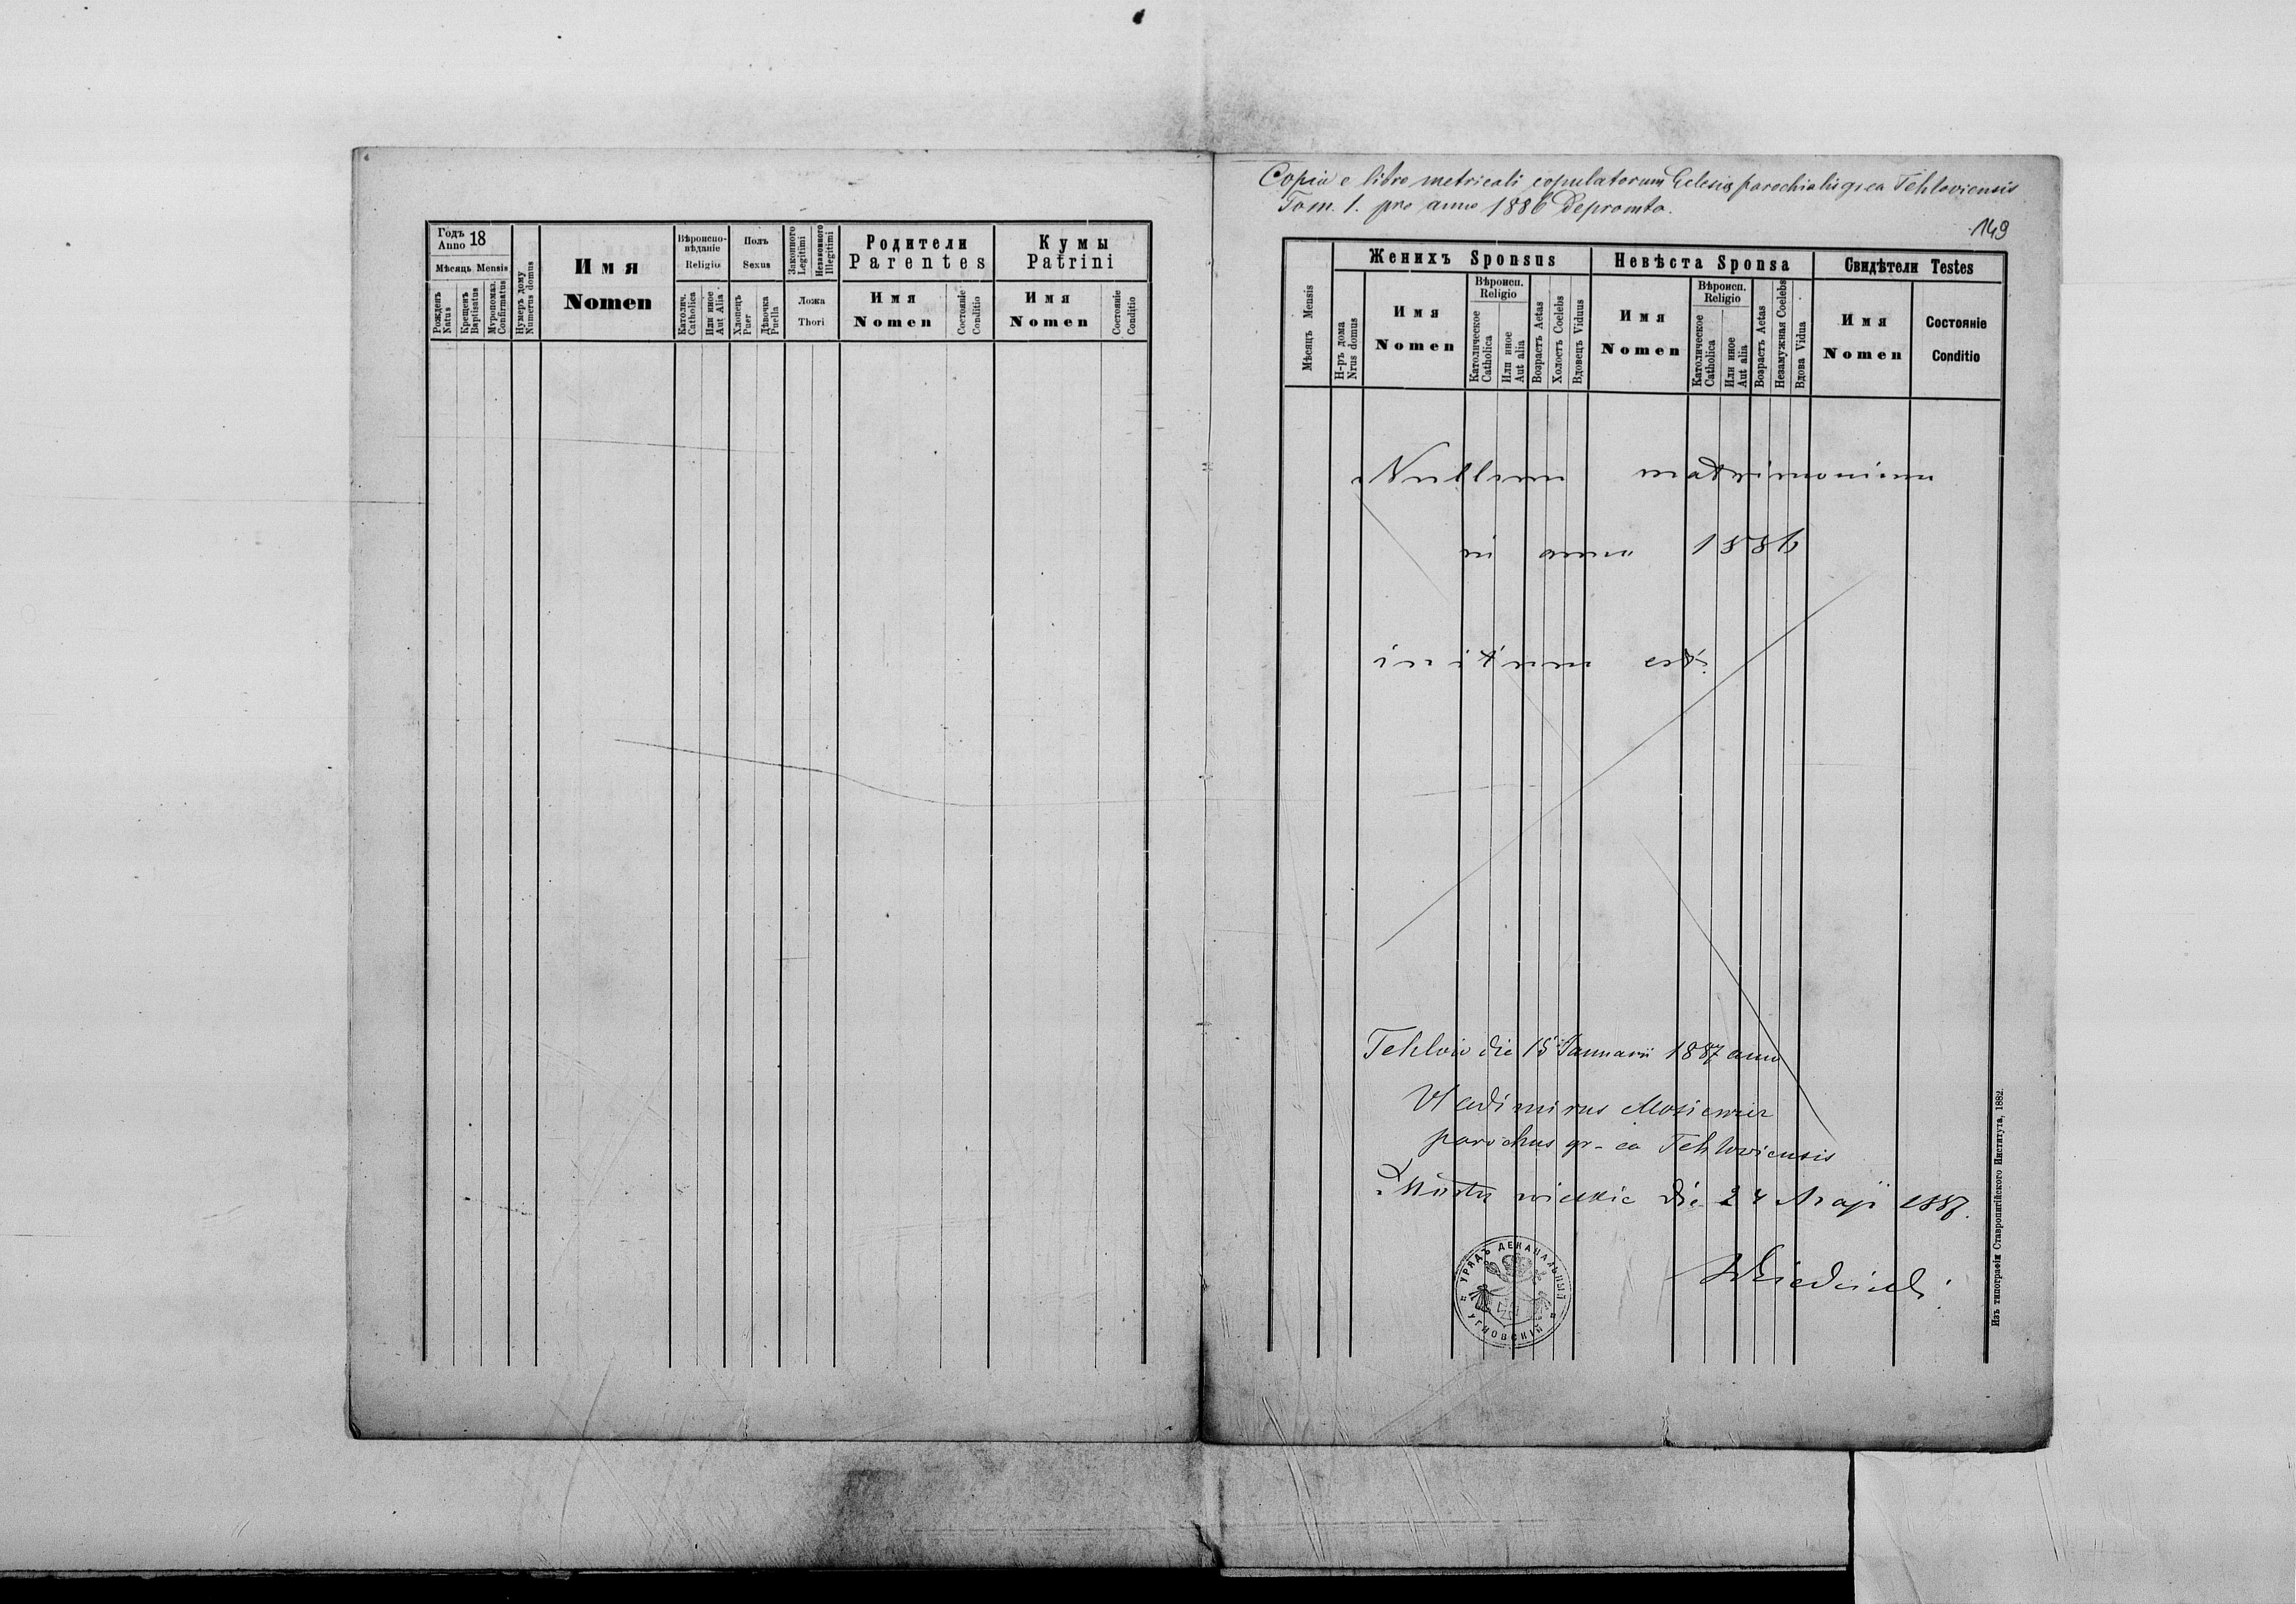 Годъ
Anno 18
Мѣсяць Mensis
Рожденъ
Natus
Крещенъ
Baptisatus
Мѵропомаз.
Confirmatus
Нумеръ дому
Numerus domus
Имя
Nomen
Вѣроиспо-
вѣданіе
Religio
Католич.
Catholica
Или иное
Aut Alia
Полъ
Sexus
Хлопецъ
Puer
Дѣвочка
Puella
Законного
Legitimi
Незаконного
Illegitimi
Ложа
Thori
Родители
Parentes
Имя
Nomen
Состояніе
Conditio
Кумы
Patrini
Имя
Nomen
Состояніе
Conditio
Copia e libro metricali copulatorum Eclesiæ parochialis gr ca Tehloviensis
Tom. 1. pro anno 1886 depromta.
149
Мѣсяцъ Mensis
Н-ръ дома
Nrus domus
Женихъ Sponsus
Имя
Nomen
Вѣроисп.
Religio
Католическое
Catholica
Или иное
Aut alia
Возрастъ Aetas
Холостъ Coelebs
Вдовецъ Viduus
Невѣста Sponsa
Имя
Nomen
Вѣроисп.
Religio
Католическое
Catholica
Или иное
Aut alia
Возрастъ Aetas
Незамужная Coelebs
Вдова Vidua
Свидѣтели Testes
Имя
Nomen
Состояніе
Conditio
Nullum matrimonium
in anno 1886
initum est.
Tehlow die 15 Januarii 1887 anno
Vladimirus
parochus gr-ca Tehloviensis
wielkie die 24 Maji 1887.
УРЯДЪ ДЕКАНАЛЬНЫЙ
УГНОВСКІЙ
Изъ типографіи Ставропигійского Института, 1882.